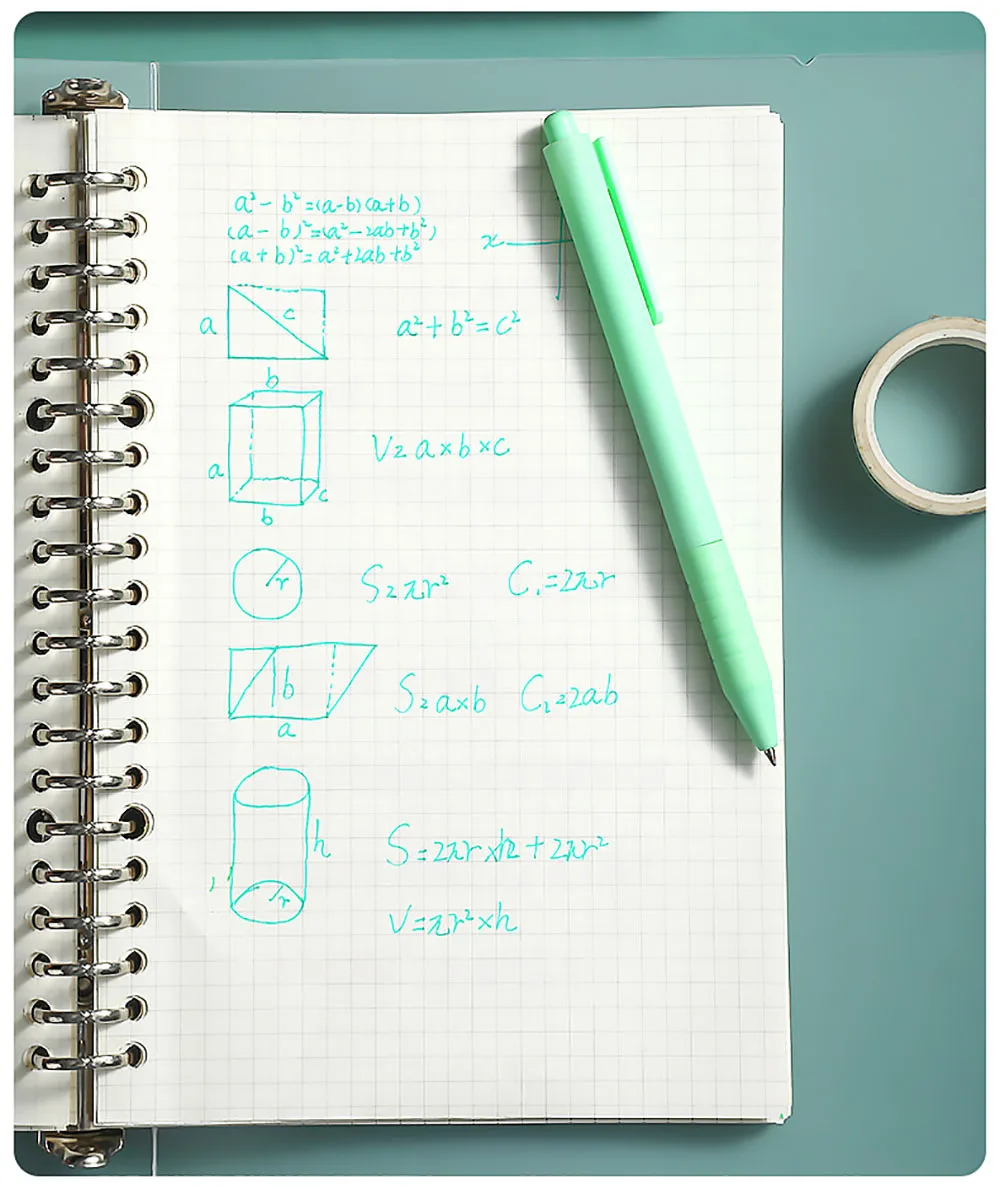 a² - b² = (a-b)(a+b)
(a - b)² = (a² - 2ab + b²)
(a + b)² = a² + 2ab + b²
x
a c a² + b² = c²
b
a c V = a × b × c
b
r S = πr² C₁ = 2πr
b S = a×b C₂ = 2ab
a
h S = 2πr × h + 2πr²
r V = πr² × h